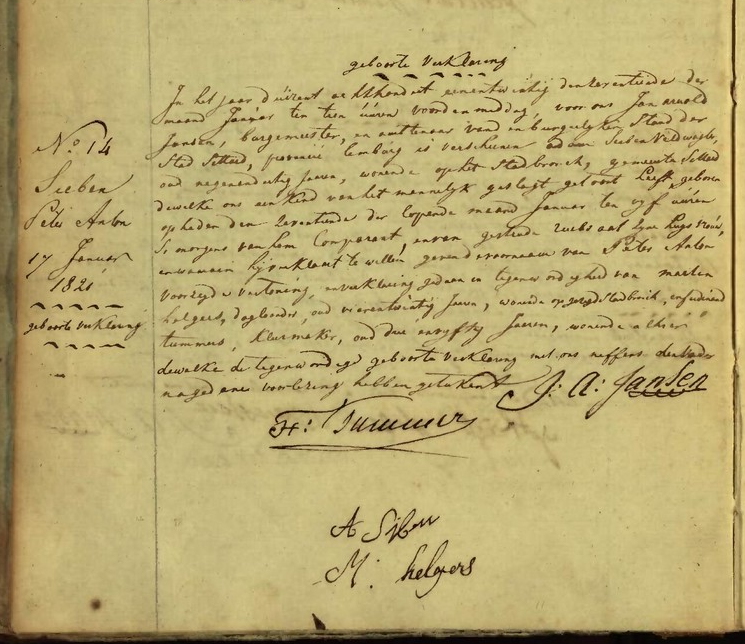 geboorte verklaring
N° 14
Seeben
Peter Anton
17 Januar
1821
geboorte verklaring
In het jaar duizent achthondert eenentwintig den zeventiende der
maand Januar ten tien uuren voordenmiddag, voor ons Jan arnold
Jansen, burgemeester, en van den burgerlyken Stand der
Stad Sittard, provincie Lemborg is verschenen Seeben Veldwagter,
oud negenendertig Jaeren, wonende op het Stadbroeck, gemeente Sittard
dewelke ons een Kind van het mannelyk geslagt getoont heeft, geboren
op heden den Zeventiende der lopende maand Januar ten vyf uuren
S'morgens van hem Comparant, en van gertrude zyne huysvrouw,
en waaraan hy verklaart te willen geven den voornaam van Peter Anton
voorzyde vertoning, en verklaring gedaan in tegenwoordigheid van marten
helgers, daglooner, oud vierentwintig Jaeren, wonende op Stadbroeck, en ferdinend
tummers, Kleermaker, oud drie en vyftig Jaeren, wonende alhier
dewelke de tegenwoordige geboorte verklaring met ons neffens den vader
na gedane voorlezing hebben getekent
J: A: Jansen
F: Tummer
A Siben
M: helgers